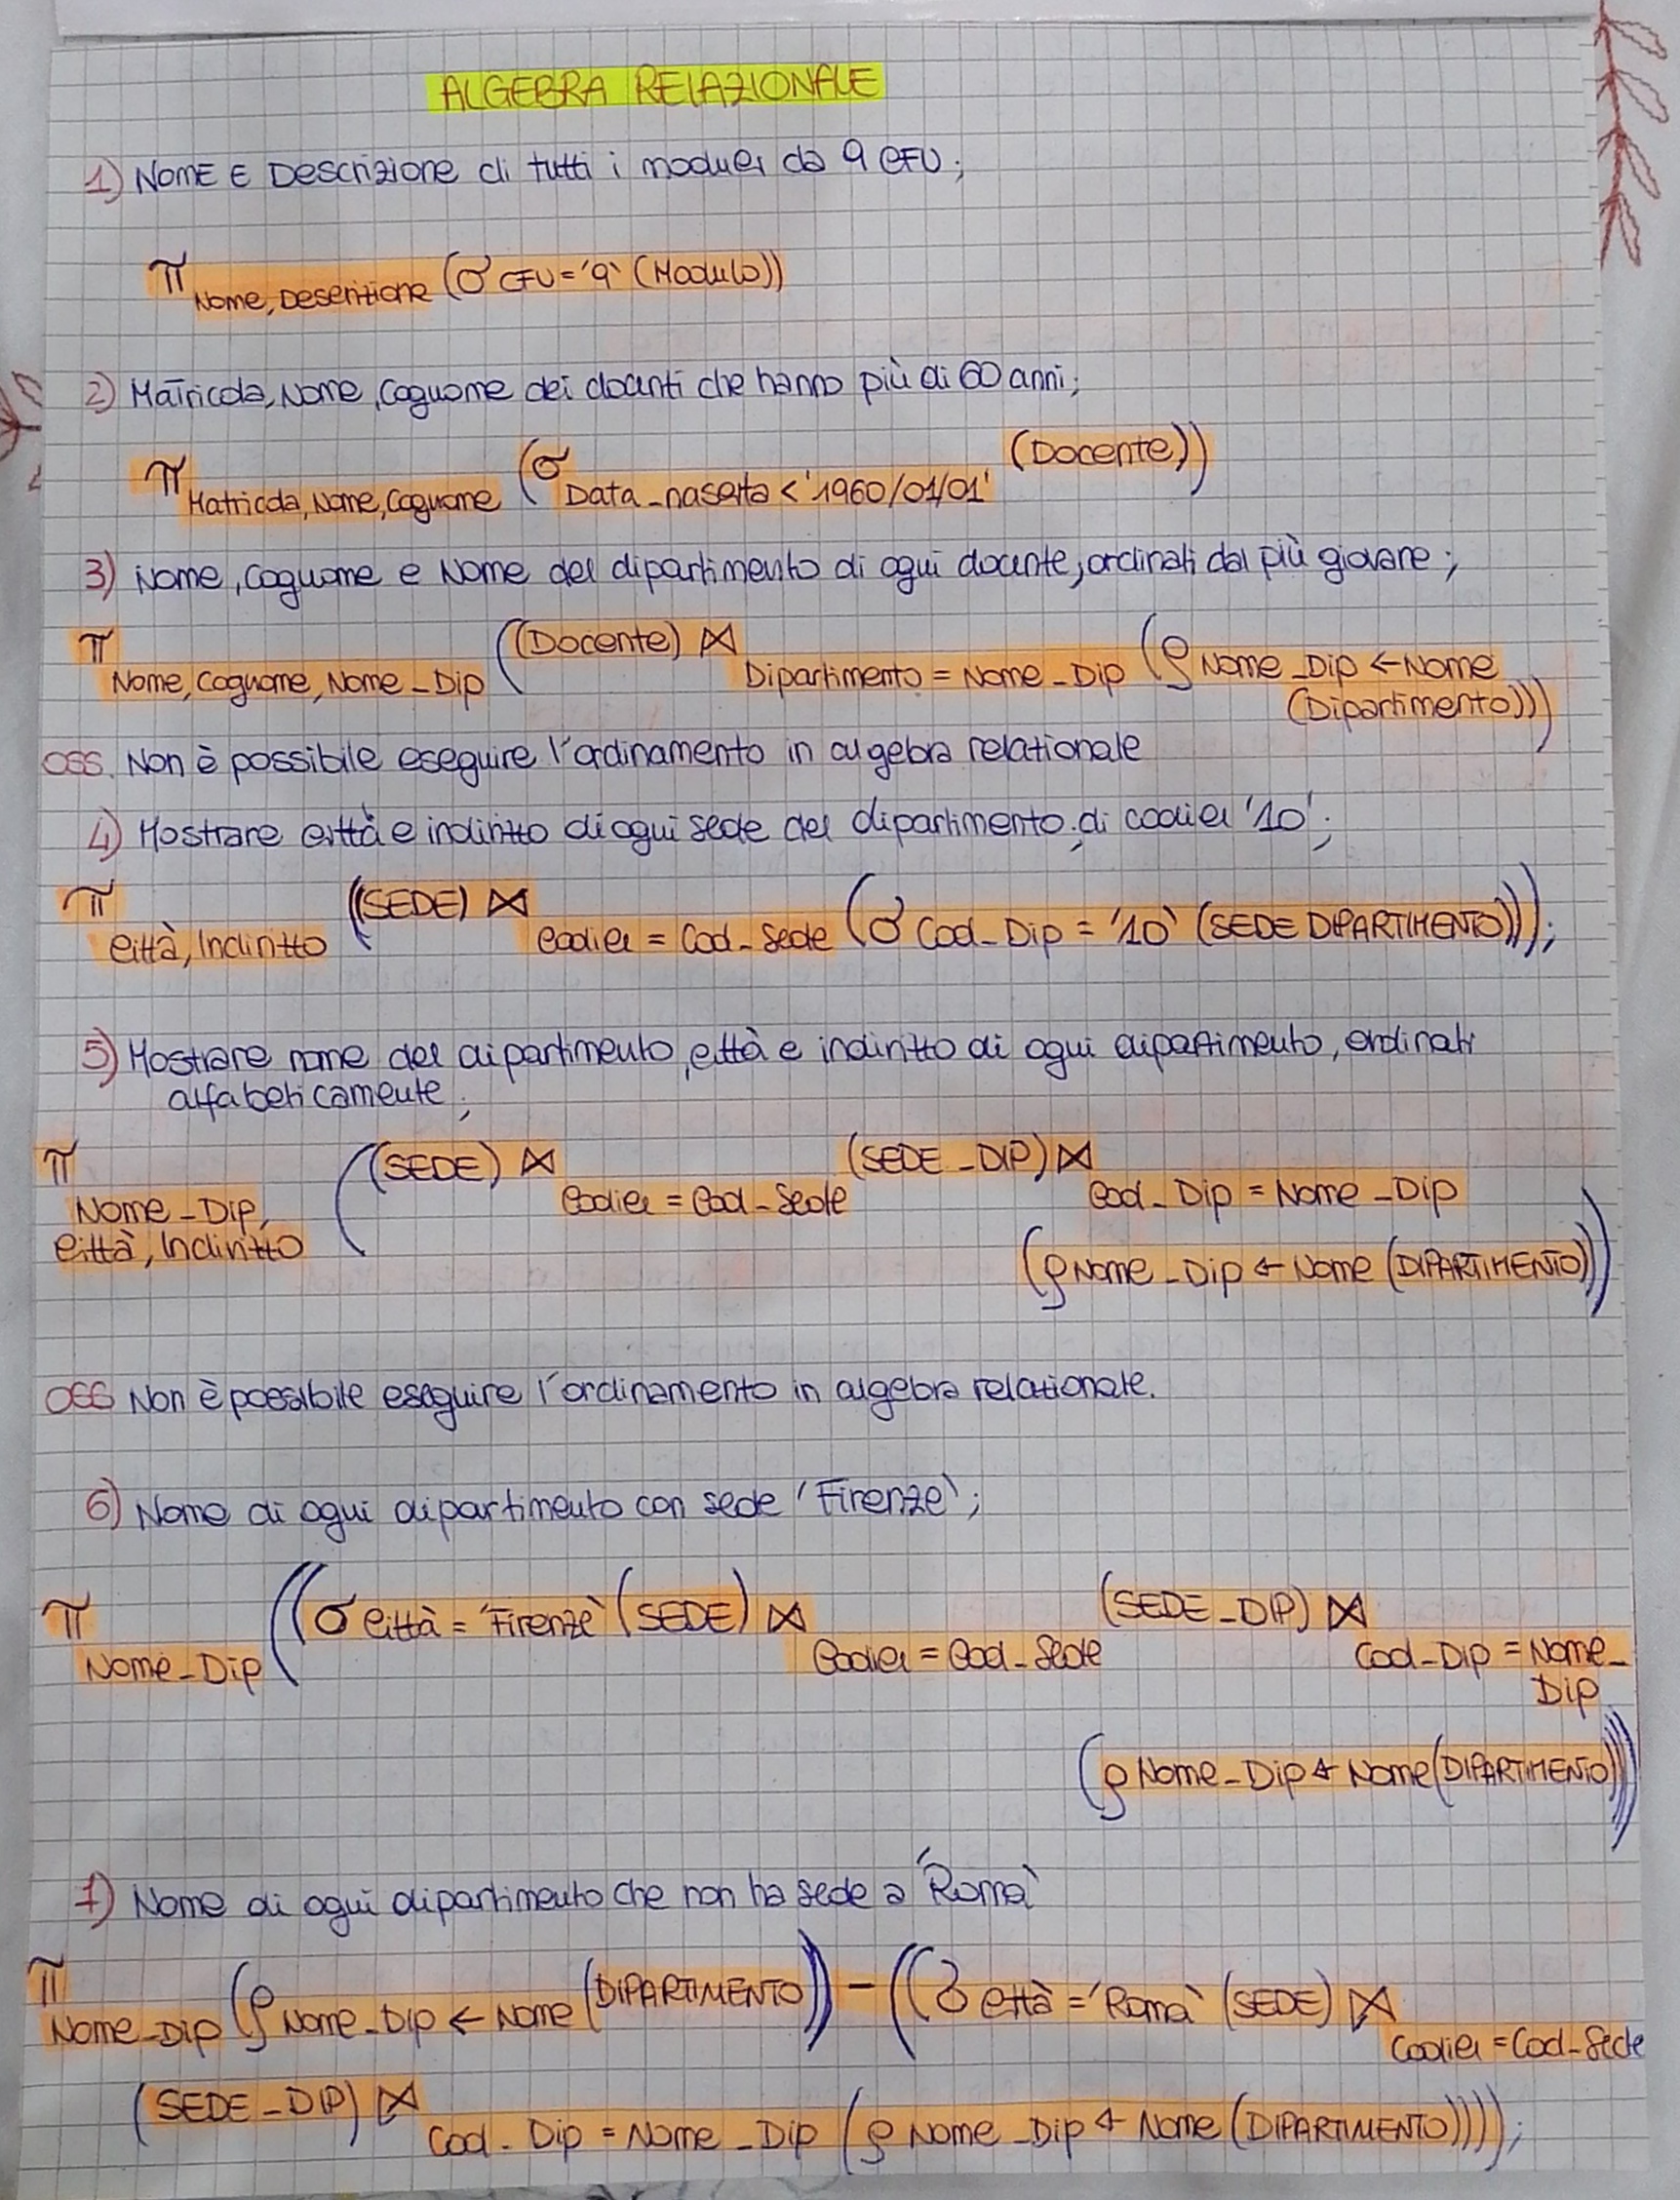 ALGEBRA RELAZIONALE
1) NOME E Descrizione di tutti i moduli da 9 CFU;
π Nome, Descrizione (σ CFU = '9' (Modulo))
2) Matricola, Nome, Cognome dei docenti che hanno più di 60 anni;
π Matricola, Nome, Cognome (σ Data_nascita < '1960/01/01' (Docente))
3) Nome, Cognome e Nome del dipartimento di ogni docente, ordinati dal più giovane;
π Nome, Cognome, Nome_Dip ((Docente) ⋈ Dipartimento = Nome_Dip (ρ Nome_Dip ← Nome
(Dipartimento)))
OSS. Non è possibile eseguire l'ordinamento in algebra relazionale
4) Mostrare città e indirizzo di ogni sede del dipartimento di codice '10';
π Città, Indirizzo ((SEDE) ⋈ Codice = Cod_Sede (σ Cod_Dip = '10' (SEDE DIPARTIMENTO)));
5) Mostrare nome del dipartimento, città e indirizzo di ogni dipartimento, ordinati
alfabeticamente;
π Nome_Dip, Città, Indirizzo ((SEDE) ⋈ Codice = Cod_Sede (SEDE_DIP) ⋈ Cod_Dip = Nome_Dip
(ρ Nome_Dip ← Nome (DIPARTIMENTO)))
OSS Non è possibile eseguire l'ordinamento in algebra relazionale.
6) Nome di ogni dipartimento con sede 'Firenze';
π Nome_Dip ((σ Città = 'Firenze' (SEDE) ⋈ Codice = Cod_Sede (SEDE_DIP) ⋈ Cod_Dip = Nome_Dip
(ρ Nome_Dip ← Nome (DIPARTIMENTO))))
7) Nome di ogni dipartimento che non ha sede a 'Roma'
π Nome_Dip (ρ Nome_Dip ← Nome (DIPARTIMENTO)) - ((σ Città = 'Roma' (SEDE) ⋈ Codice = Cod_Sede
(SEDE_DIP) ⋈ Cod_Dip = Nome_Dip (ρ Nome_Dip ← Nome (DIPARTIMENTO))));